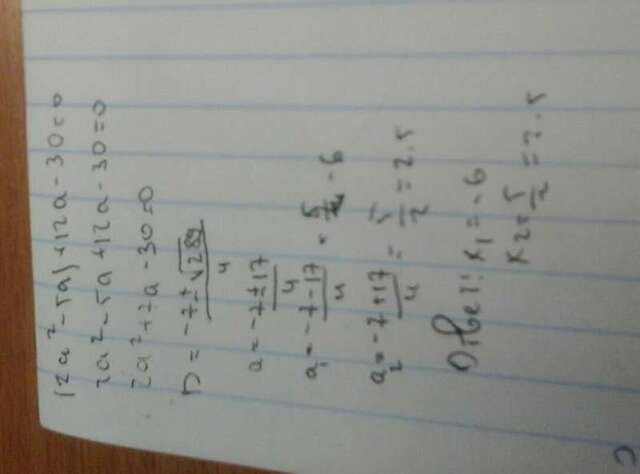 (2a²-5a)+12a-30=0
2a²-5a+12a-30=0
2a²+7a-30=0
D = -7±√289/4
a = -7±17/4
a₁ = -7-17/4 = -6
a₂ = -7+17/4 = 5/2 = 2.5
Ответ: x₁ = -6
x₂ = 5/2 = 2.5